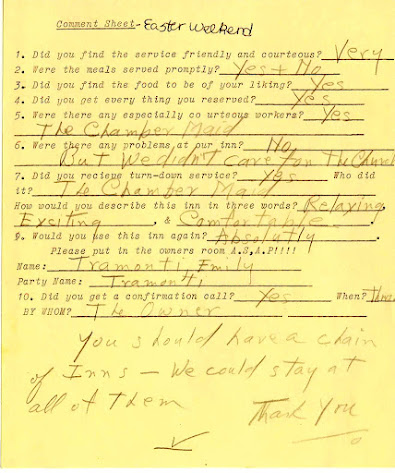 Comment Sheet - Easter Weekend
1. Did you find the service friendly and courteous? Very
2. Were the meals served promptly? Yes + No
3. Did you find the food to be of your liking? Yes
4. Did you get every thing you reserved? Yes
5. Were there any especially co urteous workers? Yes
The Chamber Maid
6. Were there any problems at our inn? No
But We didn't care for The Church
7. Did you recieve turn-down service? Yes Who did
it? The Chamber Maid
How would you describe this inn in three words? Relaxing,
Exsiting, & Comfortable.
9. Would you use this inn again? Absolutly.
Please put in the owners room A.S.A.P!!!!
Name: Tramonti, Emily
Party Name: Tramonti
10. Did you get a confirmation call? Yes When?
BY WHOM? The Owner
You should have a chain
of Inns - We could stay at
all of them
Thank You